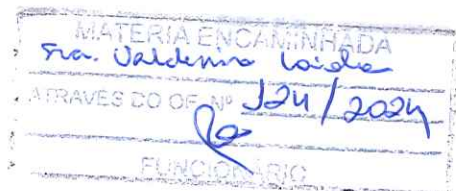 MATÉRIA ENCAMINHADA
Sra. Valdenira
ATRAVÉS DO OF. Nº 124/2024
FUNCIONÁRIO